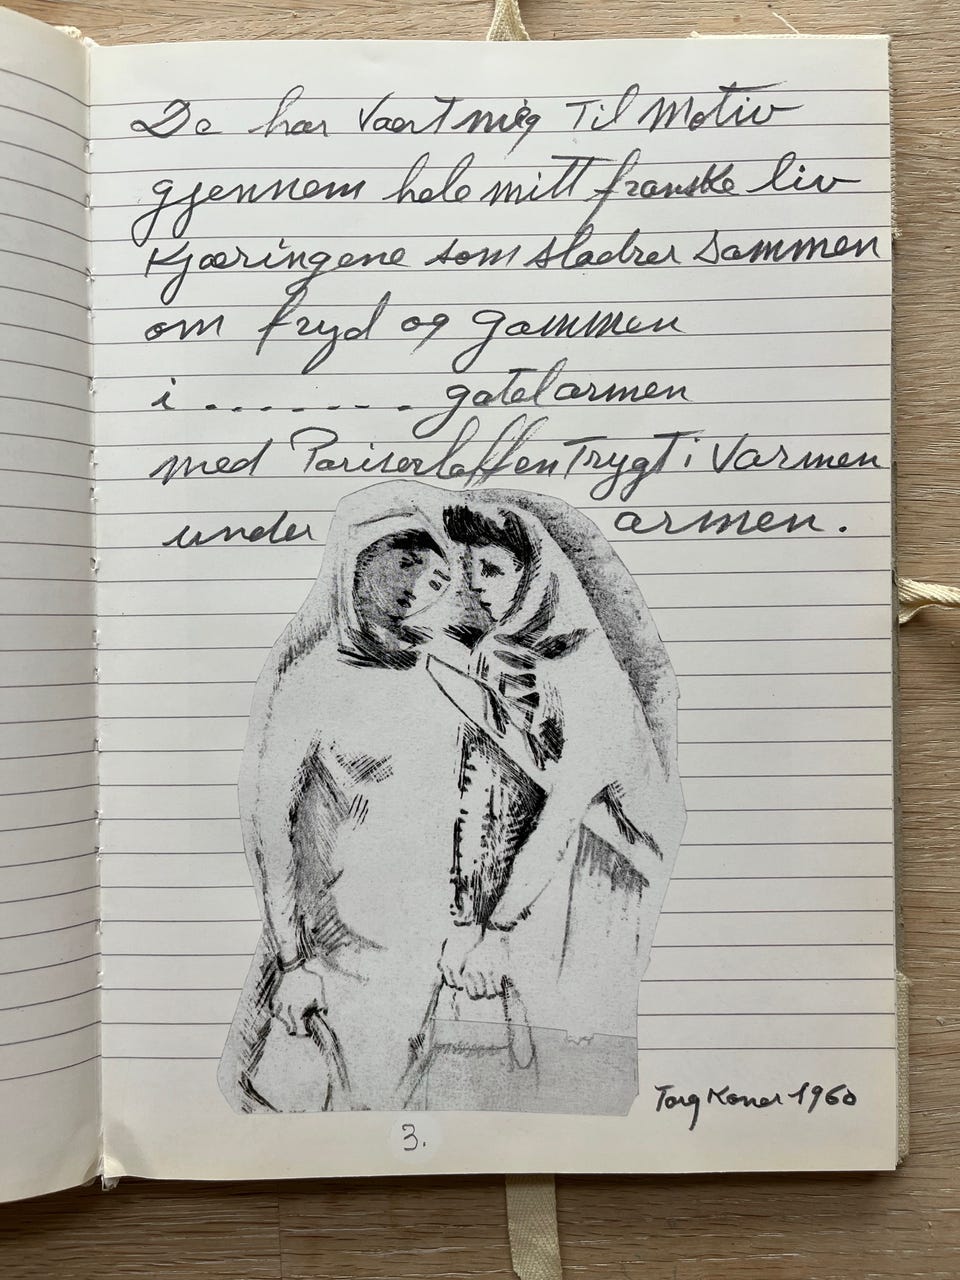 De har vært meg Til Motiv
gjennem hele mitt franske liv
Kjæringene som sladrer sammen
om fryd og gammen
i . . . . . . . gatelarmen
med Pariserloffen Trygt i Varmen
under armen.
Torg Koner 1960
3.